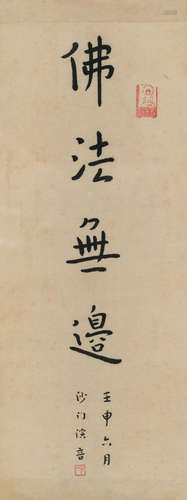 佛法無邊
壬申六月
沙门演音